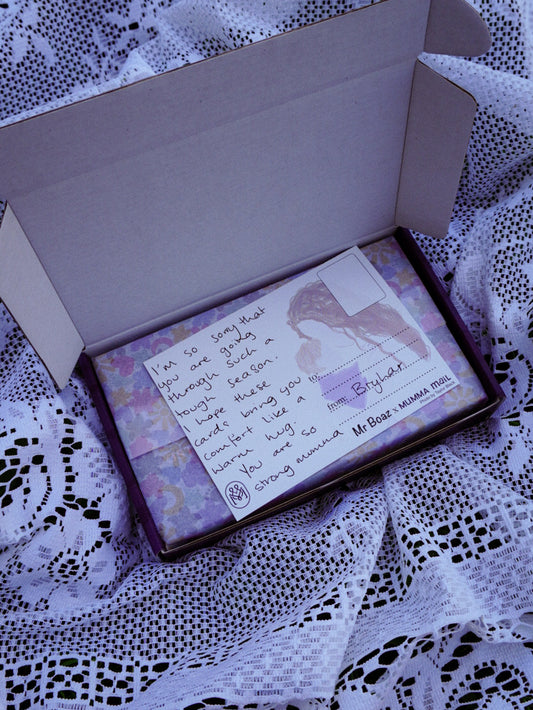 I'm so sorry that
you are going
through such a
tough season.
I hope these
cards bring you
comfort like a
warm hug.
You are so
strong mumma
to:
from: Bryhar
Mr Boaz x MUMMA mail